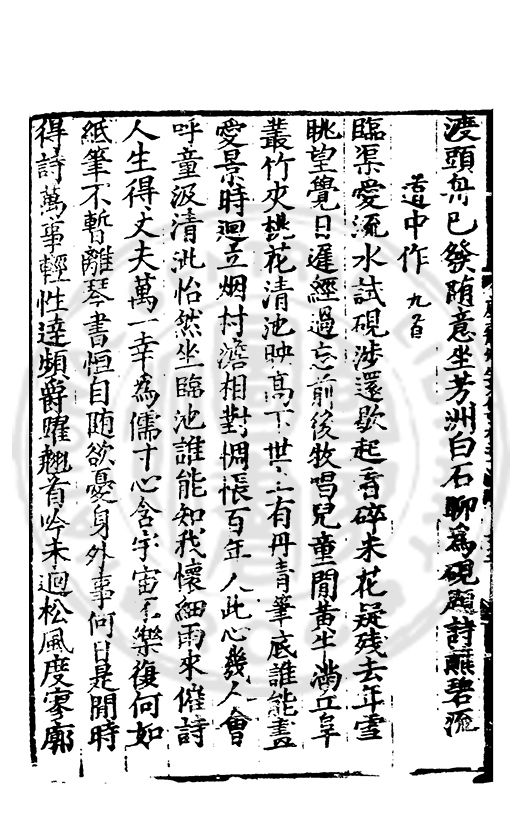 渡頭舟已發随意坐芳洲白石聊為硯題詩蘸碧流
道中作 九首
臨渠愛流水試硯涉還歇起看碎米花疑残去年雪
眺望覺日遲經過忘前後牧唱兒童閒黃牛滿丘阜
叢竹夾桃花清池映高下世上有丹青筆底誰能畫
愛景時迴立烟村澹相對惆悵百年人此心幾人會
呼童汲清泚怡然坐臨池誰能知我懷細雨來催詩
人生得丈夫萬一幸為儒寸心含宇宙不樂復何如
紙筆不暫離琴書恒自随欲憂身外事何日是閒時
得詩萬事輕性達頻爵躍翹首吟未迴松風度寥廓